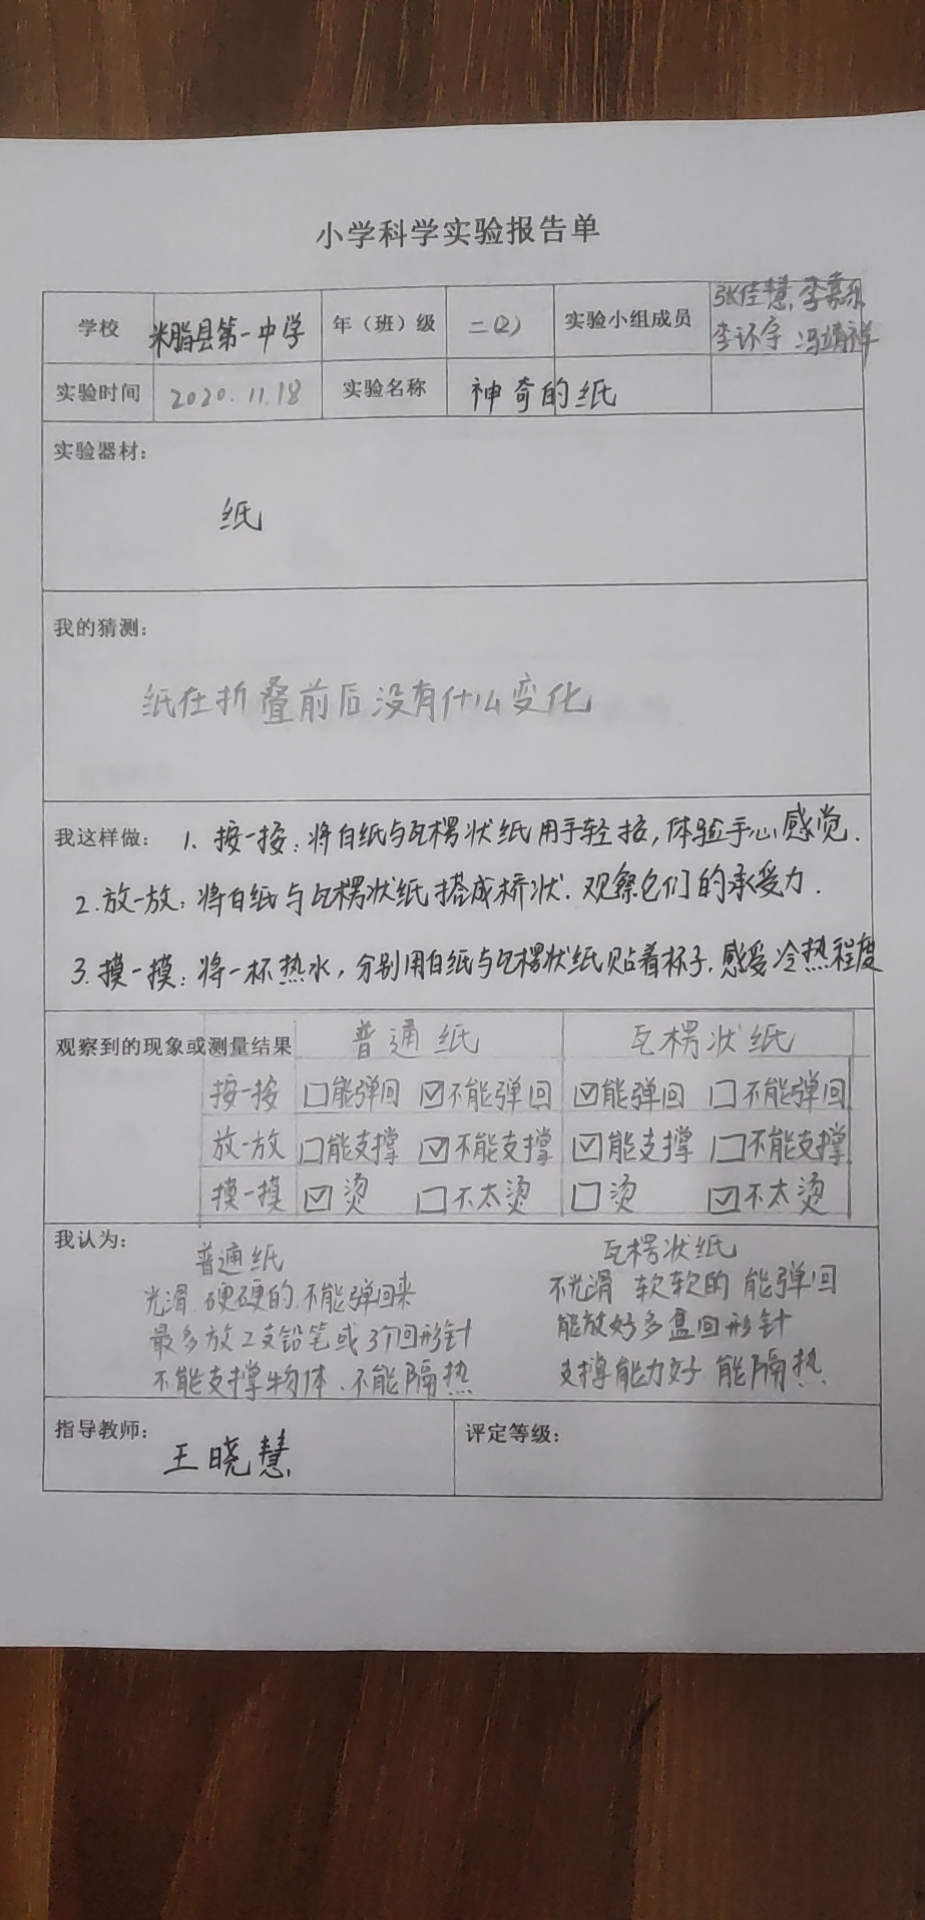 小学科学实验报告单
学校 米脂县第一中学 年（班）级 二(2) 实验小组成员 张佳慧、李嘉
李环宇 冯靖祥
实验时间 2020.11.18 实验名称 神奇的纸
实验器材：
纸
我的猜测：
纸在折叠前后没有什么变化
我这样做： 1. 按一按：将白纸与瓦楞状纸用手轻按，体验手心感觉.
2. 放一放：将白纸与瓦楞状纸搭成桥状.观察它们的承受力.
3. 摸一摸：将一杯热水，分别用白纸与瓦楞状纸贴着杯子.感受冷热程度
观察到的现象或测量结果 普通纸 瓦楞状纸
按一按 □能弹回 ☑不能弹回 ☑能弹回 □不能弹回
放一放 □能支撑 ☑不能支撑 ☑能支撑 □不能支撑
摸一摸 ☑烫 □不太烫 □烫 ☑不太烫
我认为：
普通纸
光滑 硬硬的 不能弹回来
最多放2支铅笔或3个回形针
不能支撑物体、不能隔热
瓦楞状纸
不光滑 软软的 能弹回
能放好多盒回形针
支撑能力好 能隔热.
指导教师： 王晓慧 评定等级：